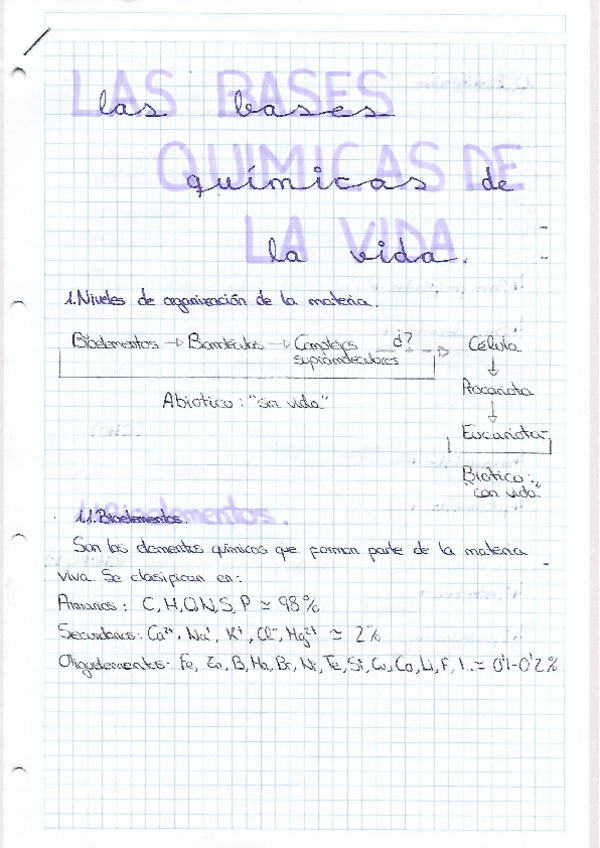 LAS BASES
las bases
QUIMICAS DE
químicas de
LA VIDA
la vida.
1. Niveles de organización de la materia.
Bioelementos → Biomoléculas → Complejos supramoleculares - - ¿? - - → Célula
↓
Procariota
↓
Eucariota
Abiotico: "sin vida"
Biotico: "con vida"
1.1. Bioelementos.
Son los elementos químicos que forman parte de la materia
viva. Se clasifican en:
Primarios: C, H, O, N, S, P ≃ 98%
Secundarios: Ca²⁺, Na⁺, K⁺, Cl⁻, Mg²⁺ ≃ 2%
Oligoelementos: Fe, Zn, B, Br, Ni, Te, Si, Cu, Co, Li, F, I. ≃ 0'1-0'2%